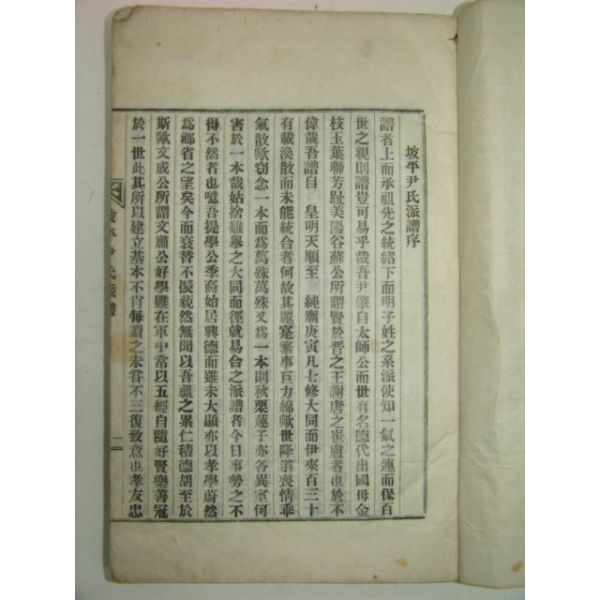 坡平尹氏派譜序
譜者上而承祖先之統緒下而明子姓之系派使知一氣之連而保百
世之親則譜豈可易乎哉吾尹肇自太師公而世有名德代出國母金
枝玉葉聯芳趾美陽谷蘇公所謂賢於晋之王謝唐之崔盧者也於不
偉哉吾譜自 皇明天順至 純廟庚寅凡七修大同而伊來百三十
有載渙散而未能統合者何故其麗寔繁事巨力綿歟世降渝喪情乖
氣散歟窃念一本而爲萬殊萬殊又爲一本則秋栗蓮子亦各異室何
害於一本哉姑捨難擧之大同而徑就易合之派譜者今日事勢之不
得不然者也噫吾提學公季裔始居興德而雖未大顯亦以孝學蔚然
爲鄕省之望矣今而衰替不振藐然無聞以吾祖之累仁積德胡至於
斯歟文成公所謂文肅公好學雖在軍中常以五經自隨好賢樂善冠
於一世此其所以建立基本不肖每讀之未甞不三復致意也孝友忠
坡平尹氏派譜
二